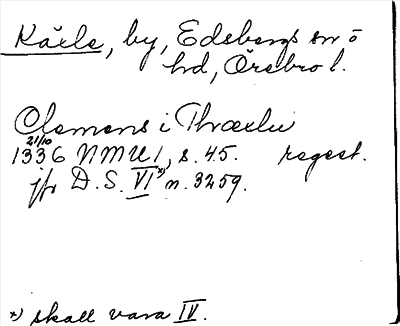 Kärle, by, Edsbergs sn o
hd, Örebro l.
Clemens i Thrærlu
21/10
1336 NMU 1, s. 45. regest.
jfr D. S. VI*) n. 3259.
*) skall vara IV.